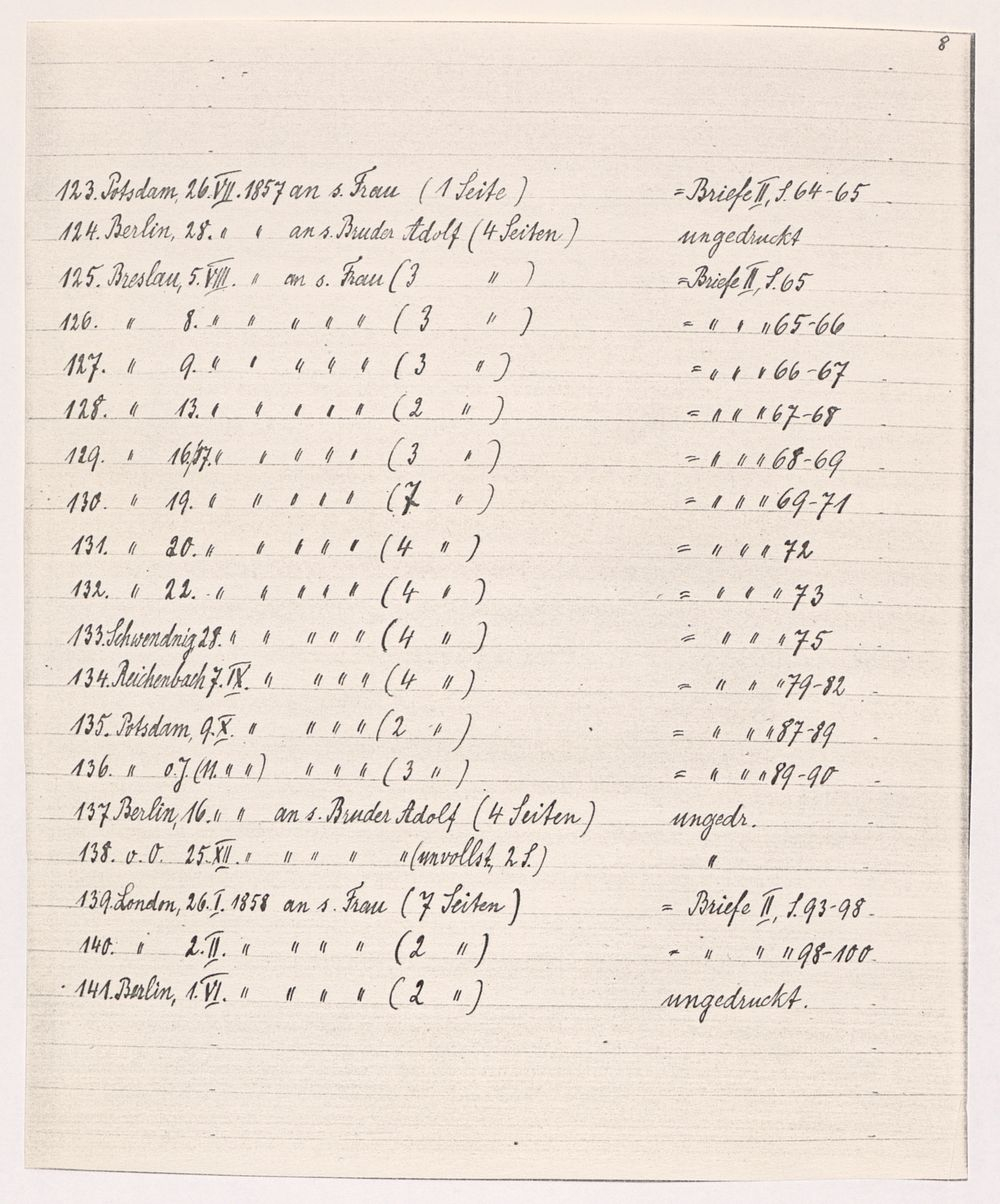 8
123. Potsdam, 26. VII. 1857 an s. Frau (1 Seite) = Briefe II, S. 64-65
124. Berlin, 28. " " an s. Bruder Adolf (4 Seiten) ungedruckt
125. Breslau, 5. VIII. " an s. Frau (3 " ) = Briefe II, S. 65
126. " 8. " " " " " (3 " ) = " " " 65-66
127. " 9. " " " " " (3 " ) = " " " 66-67
128. " 13. " " " " " (2 " ) = " " " 67-68
129. " 16/17. " " " " " (3 " ) = " " " 68-69
130. " 19. " " " " " (7 " ) = " " " 69-71
131. " 20. " " " " " (4 " ) = " " " 72
132. " 22. " " " " " (4 " ) = " " " 73
133. Schwendnig 28. " " " " " (4 " ) = " " " 75
134. Reichenbach 7. IX. " " " " (4 " ) = " " " 79-82
135. Potsdam, 9. X. " " " " (2 " ) = " " " 87-89
136. " o.J. (11. " " ) " " " (3 " ) = " " " 89-90
137 Berlin, 16. " " an s. Bruder Adolf (4 Seiten) ungedr.
138. o. O. 25. XII. " " " " " (unvollst., 2 S.) "
139. London, 26. I. 1858 an s. Frau (7 Seiten) = Briefe II, S. 93-98.
140. " 2. II. " " " " (2 " ) = " " " 98-100.
141. Berlin, 1. VI. " " " " (2 " ) ungedruckt.